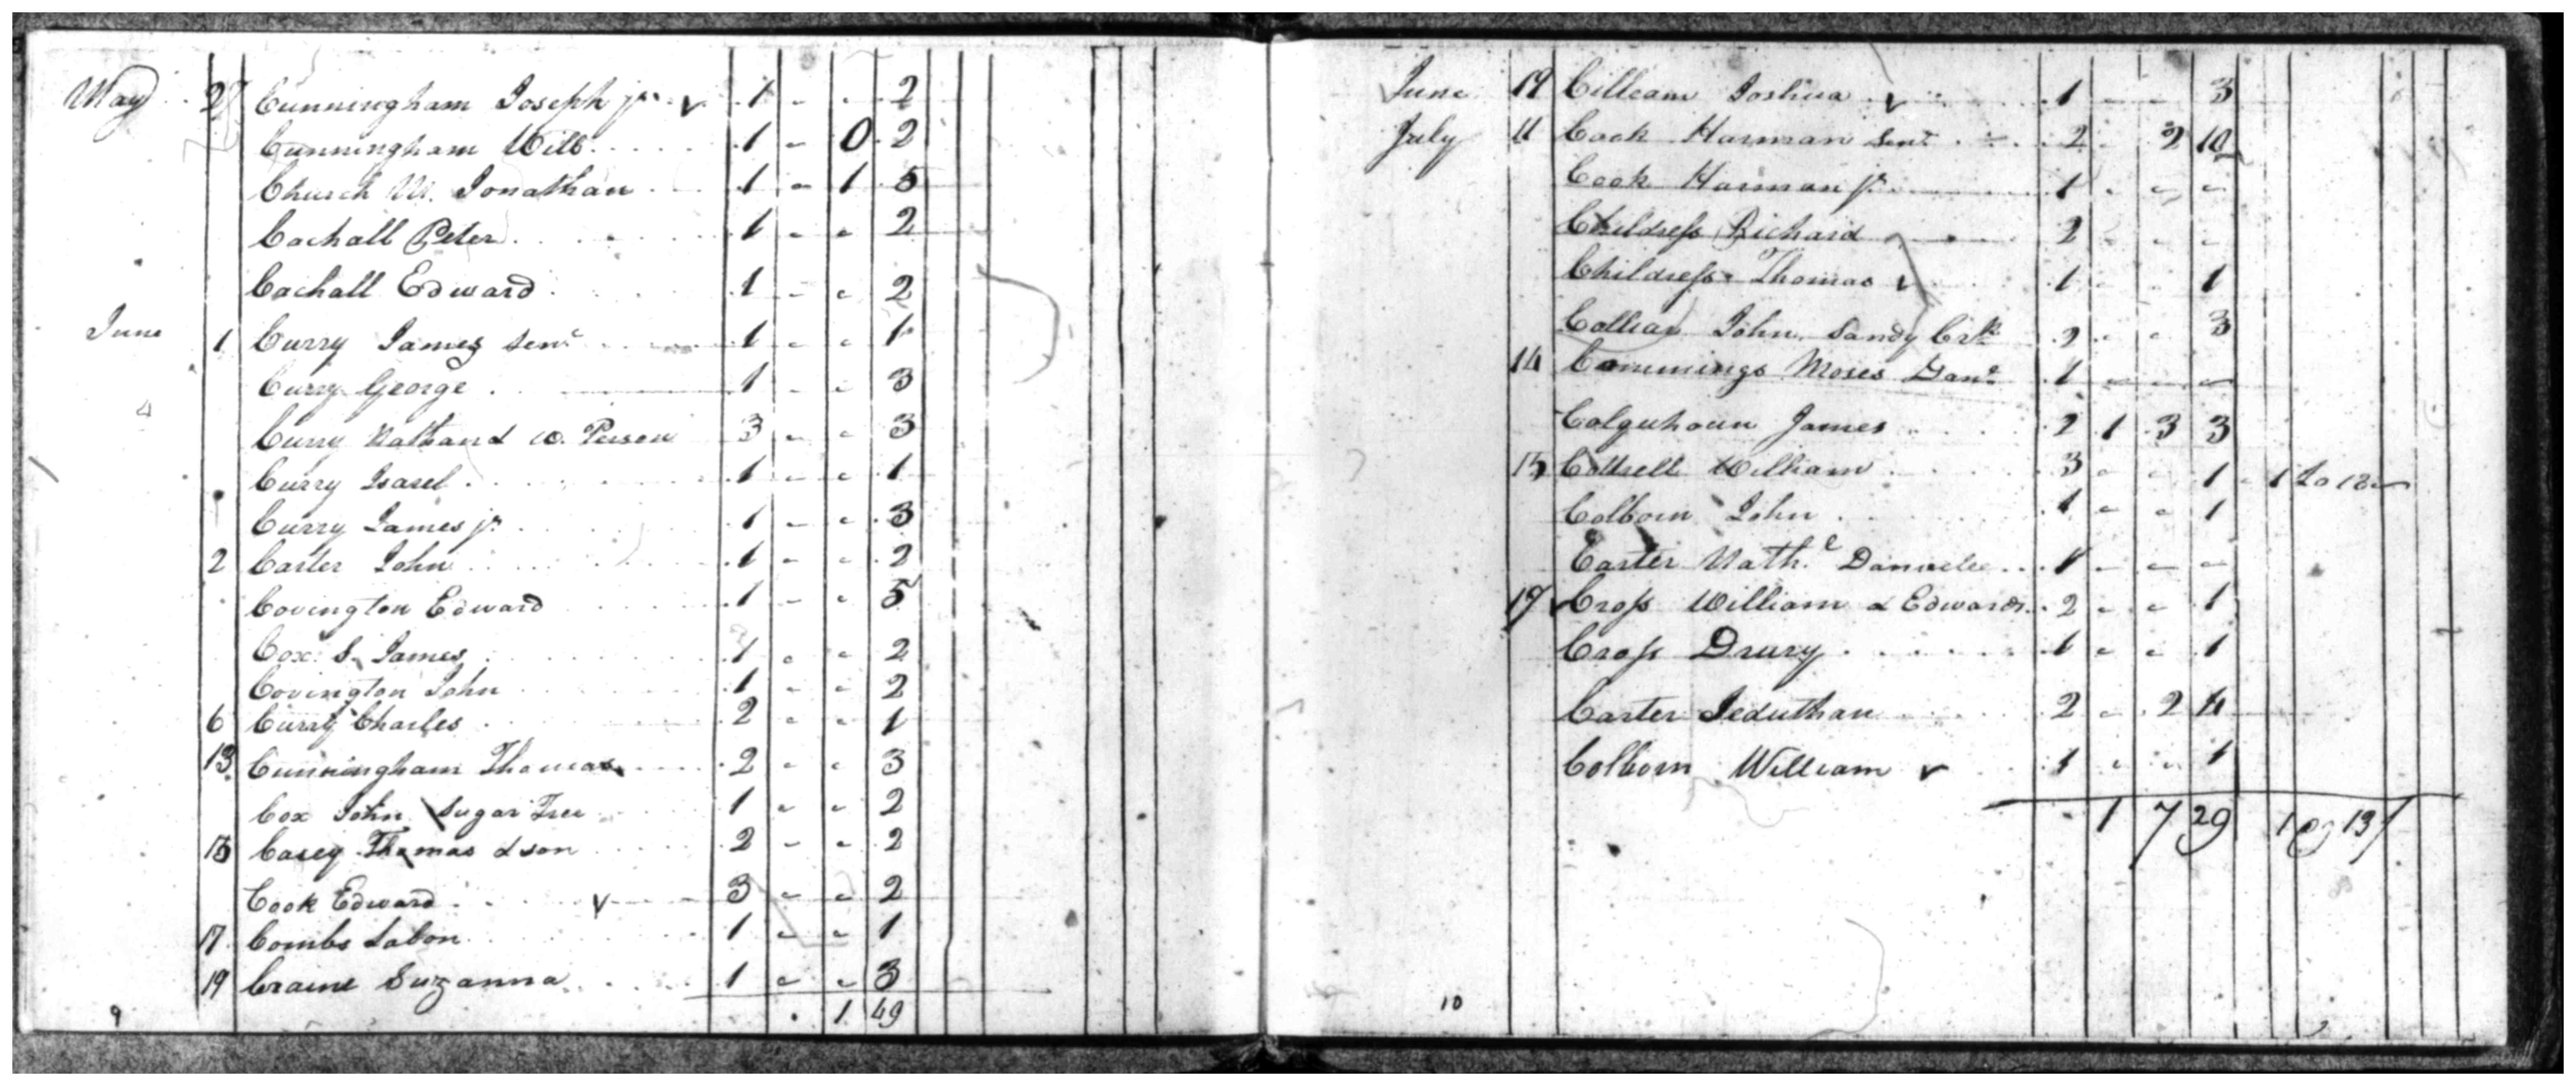 May 27 Cunningham Joseph jr. v 1 - . 2
Cunningham Will 1 - 0 2
Church W. Jonathan 1 - 1 5
Cachall Peter 1 - - 2
Cachall Edward 1 - - 2
June 1 Curry James Senr 1 - - 1
Curry George 1 - - 3
Curry Nathan & Person 3 - - 3
Curry Isarel 1 - - 1
Curry James jr. 1 - - 3
2 Carter John 1 - - 2
Covington Edward 1 - - 5
Cox S. James 1 - - 2
Covington John 1 - - 2
6 Curry Charles 2 - - 1
13 Cunningham Thomas 2 - - 3
Cox John Sugar Tree 1 - - 2
15 Casey Thomas & son 2 - - 2
Cook Edward v 3 - - 2
17 Combs Labon 1 - - 1
19 Craine Suzanna 1 - - 3
1 49
9
June 19 Cilleam Joshua v 1 - - 3
July 11 Cook Harman Senr 2 - 2 10
Cook Harman jr 1 - - -
Childress Richard 2 - - -
Childress Thomas v 1 - - 1
Collier John Sandy Crk 2 - - 3
14 Cummings Moses 1 - - -
Colquhoun James 2 1 3 3
15 Cottrell William 3 - - 1
Colborn John 1 - - 1
Carter Nathl 1 - - -
19 Cross William & Edward 2 - - 1
Cross Drury 1 - - 1
Carter Jeduthan 2 - 2 4
Colborn William v 1 - - 1
1 7 29
10